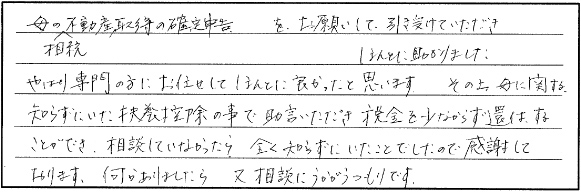 母の不動産取得の確定申告を、お願いして、引き受けていただき
相続
ほんとに助かりました。
やはり専門の方にお任せしてほんとに良かったと思います その上 母に関する
知らずにいた扶養控除の事で助言いただき 税金を少なからず還付する
ことができ、相談していなかったら 全く知らずにいたことでしたので感謝して
おります、何かありましたら 又 相談にうかがうつもりです。